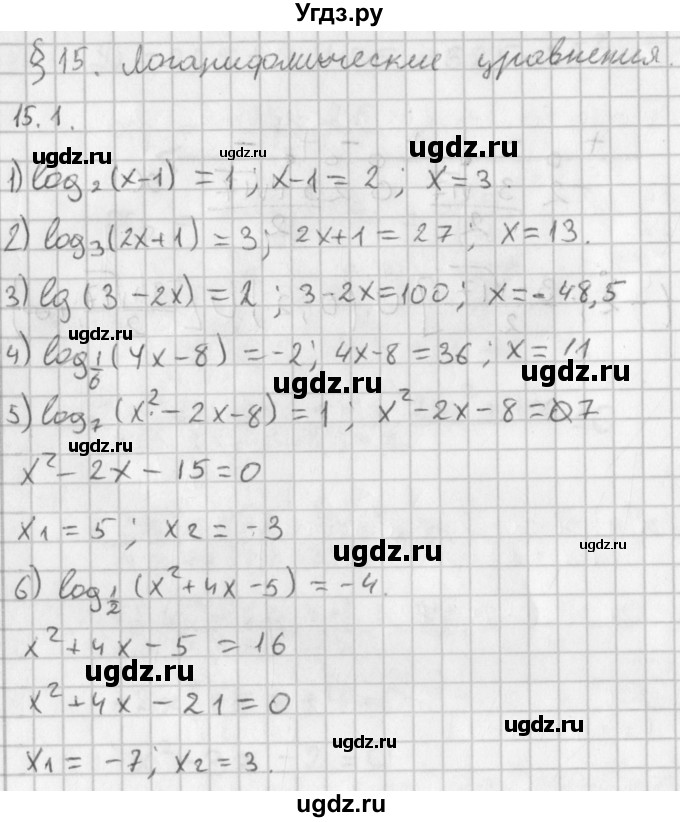 Угдз.ру
§ 15. Логарифмические уравнения.
15.1.
ugdz.ru ugdz.ru ugdz.ru
1) log₂(x-1) = 1; x-1 = 2; x = 3.
2) log₃(2x+1) = 3; 2x+1 = 27; x = 13.
3) lg(3-2x) = 2; 3-2x=100; x = -48,5
ugdz.ru
4) log_{1/6}(4x-8) = -2; 4x-8 = 36; x = 11
ugdz.ru ugdz.ru
5) log₇(x²-2x-8) = 1; x²-2x-8 = 7
ugdz.ru
x²-2x-15=0
x1 = 5; x2 = -3
ugdz.ru ugdz.ru
6) log_{1/2}(x²+4x-5) = -4.
x²+4x-5 = 16
ugdz.ru
x²+4x-21=0
ugdz.ru ugdz.ru
x1 = -7; x2 = 3.
ugdz.ru